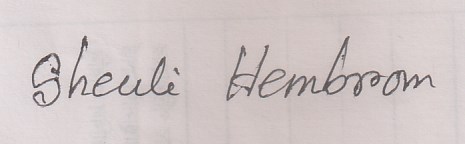 Sheuli Hembrom